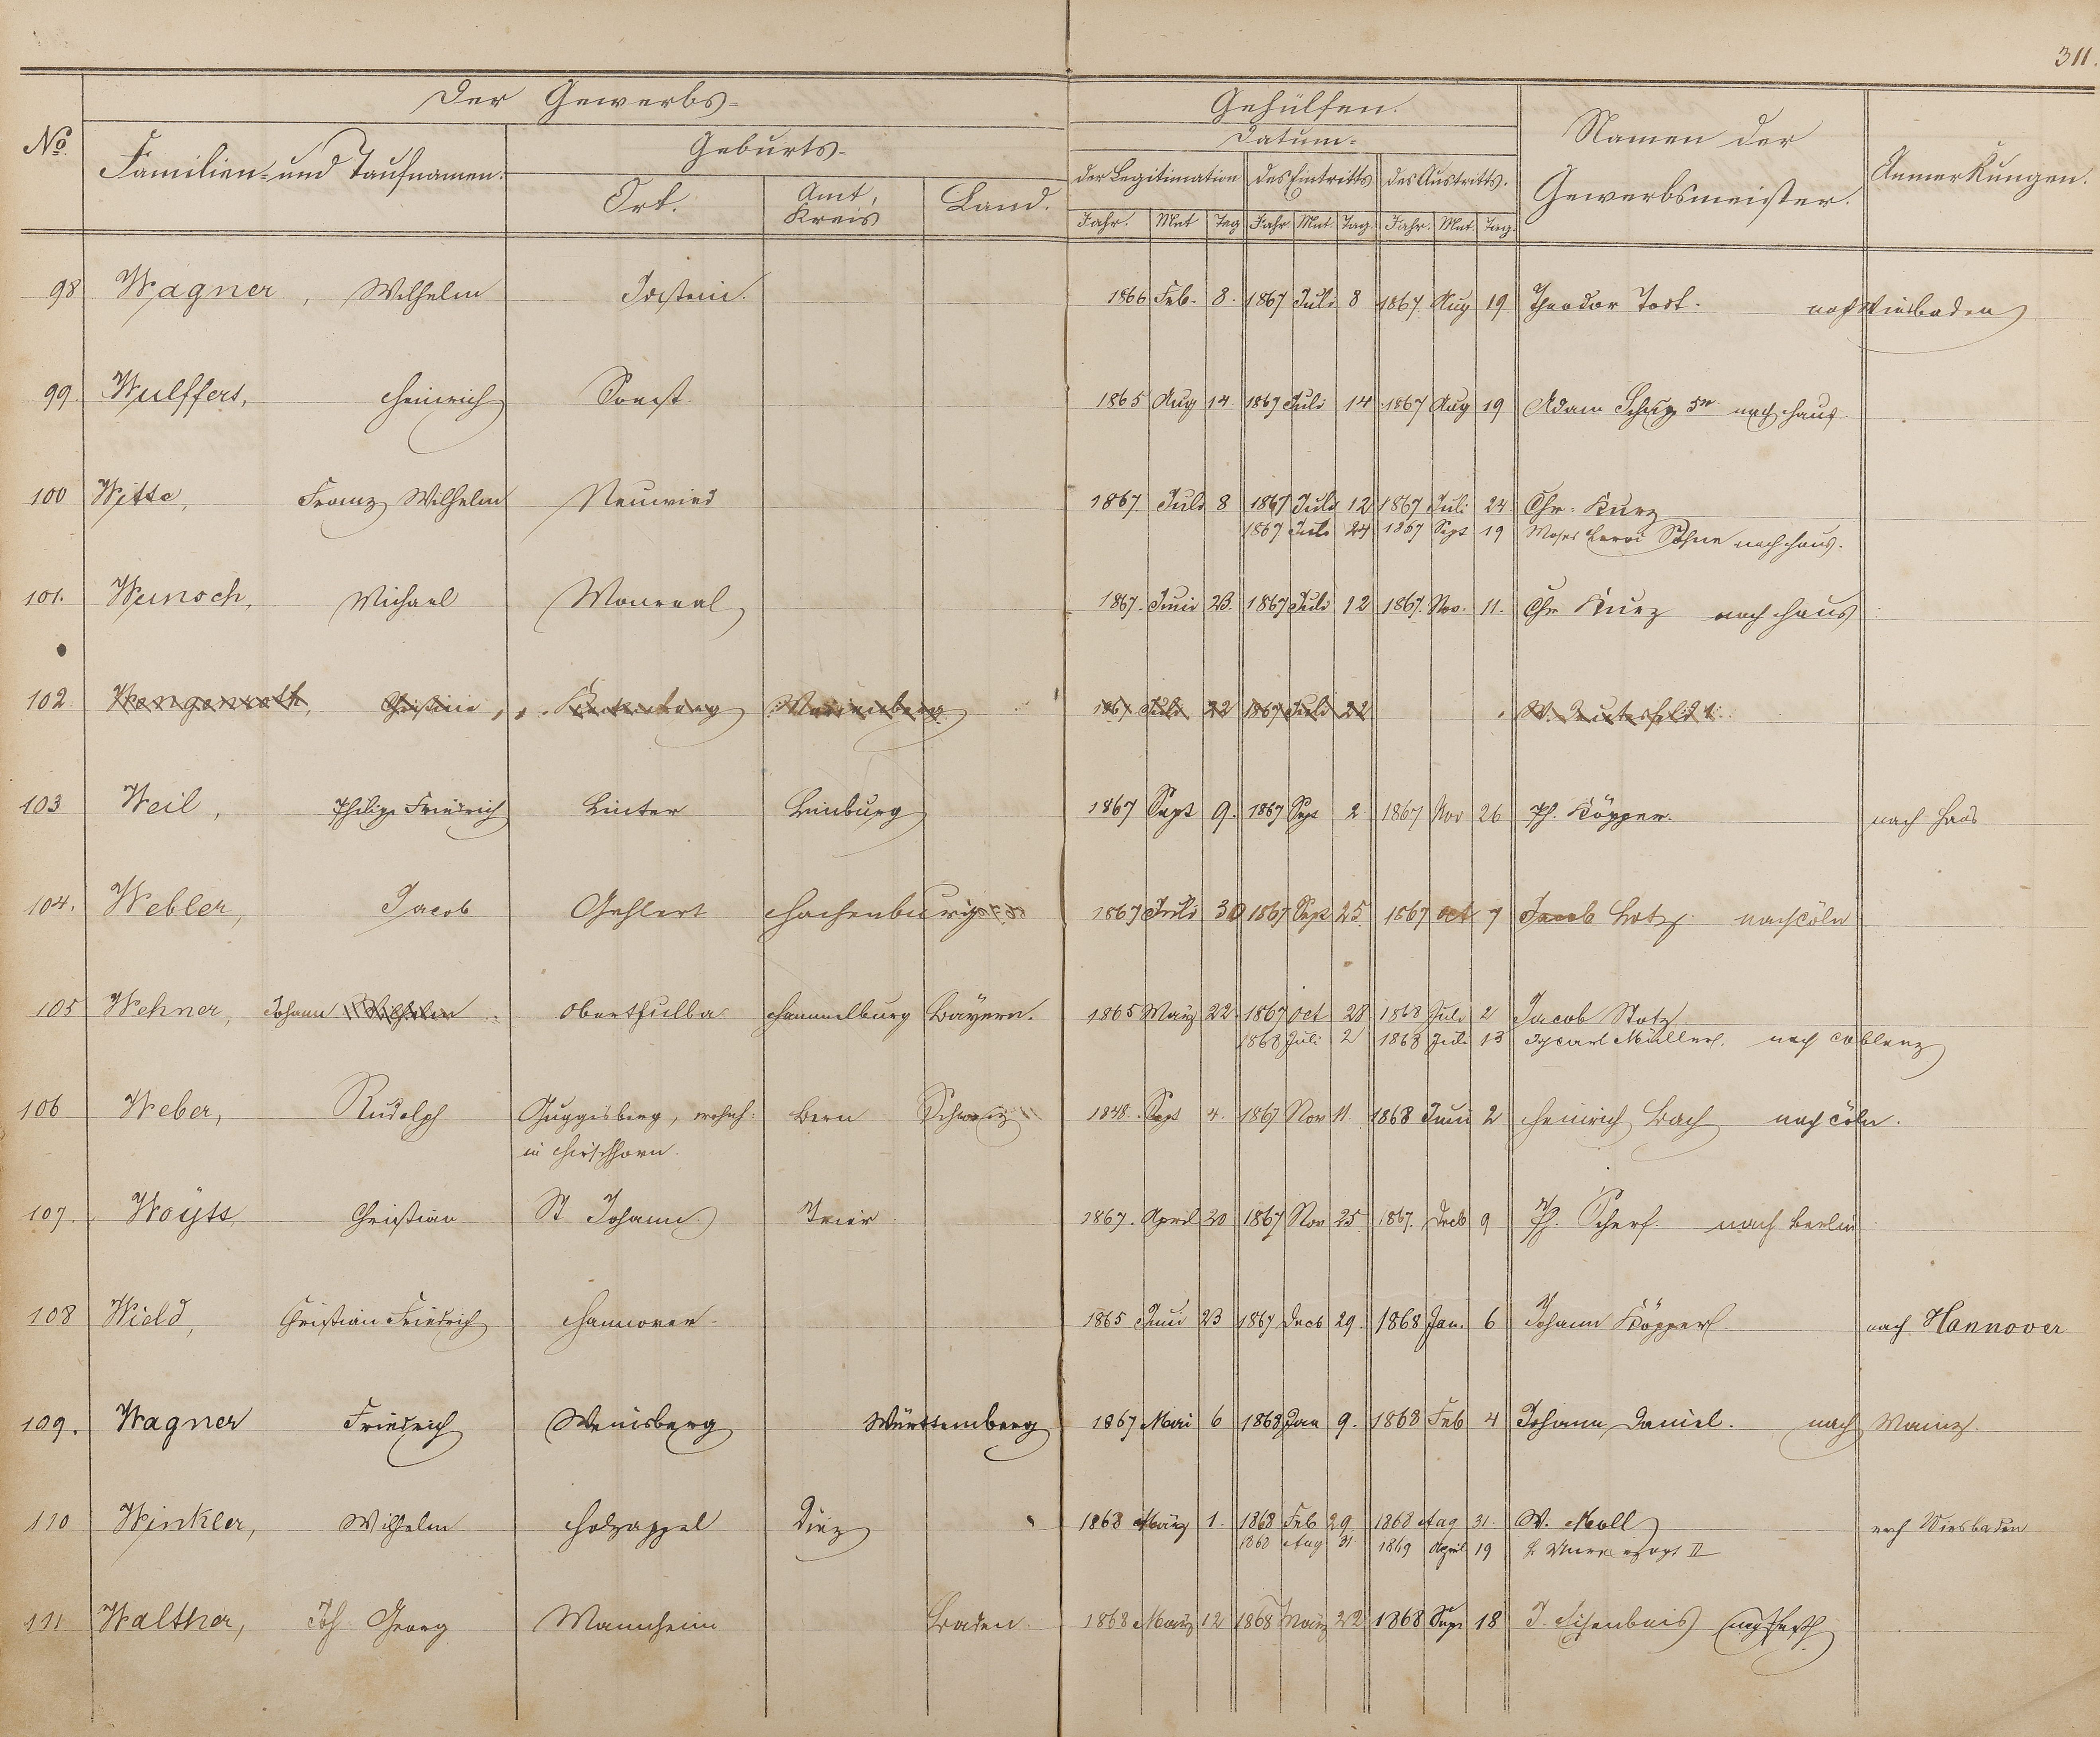 311.
Der Gewerbs- Gehülfen.
No. Familien- und Taufnamen. Geburts- Datum. Namen der Gewerbsmeister. Anmerkungen.
Ort. Amt, Kreis Land. der Legitimation des Eintritts des Austritts.
Jahr. Mnt Tag Jahr Mnt. Tag Jahr. Mnt. Tag.
98 Wagner, Wilhelm Idstein. 1866 Feb. 8. 1867 Juli 8 1867 Aug 19 Theodor Jost. nach Wiesbaden
99. Wulffers, Heinrich Soest. 1865 Aug 14. 1867 Juli 14 1867 Aug 19 Adam nach Haus
100 Witte, Franz Wilhelm Neuwied 1867. Juli 8 1867 Juli 12 1867 Juli 24. Chr. Kurz
1867 Juli 24 1867 Sept 19 Söhne nach Haus.
101. Wunsch, Michael Monreal 1867. Juni 23. 1867 Juli 12 1867. Nov. 11. Chr Kurz nach Haus
102. Wengenroth, Christian, Marienberg 1867 Juli 22 1867 Juli 22 W.
103 Weil, Philipp Friedrich Linter Limburg 1867 Sept 9. 1867 Sept 2 1867 Nov 26 Ph. Köpper. nach Haus
104. Webler, Jacob Gehlert Hachenburg 1867 Juli 30 1867 Sept 25. 1867 Oct 7 Jacob Lotz. nach Cöln
105 Wehner, Johann Wilhelm Oberthulba Hammelburg Bayern. 1865 März 22. 1867 Oct 28 1868 Juli 2 Jacob Stotz
1868 Juli 2 1868 Juli 13 Carl Müller. nach Coblenz
106 Weber, Rudolph Guggisberg, wohnh: Bern Schweiz 1848. Sept 4. 1867 Nov 11. 1868 Juni 2 Heinrich Bach nach Cöln.
in Hirschhorn.
107. Woyts, Christian St Johann. Trier 1867. April 20 1867 Nov 25 1867. Decb 9 Ph. Scherf. nach Berlin
108 Wield, Christian Friedrich Hannover. 1865 Juni 23 1867 Decb 29. 1868 Jan. 6 Johann Köpper. nach Hannover
109. Wagner Friedrich Weinsberg Württemberg 1867 Mai 6 1868 Jan 9. 1868 Feb 4 Johann Daniel. nach Mainz.
110 Winkler, Wilhelm Holzappel Diez 1868 März 1. 1868 Feb 29. 1868 Aug 31. W. Noll nach Wiesbaden
1868 Aug 31 1869 April 19 II
111 Walther, Joh Georg Mannheim Baden. 1868 März 12 1868 März 22 1868 Sept 18 J. Eisenbeis